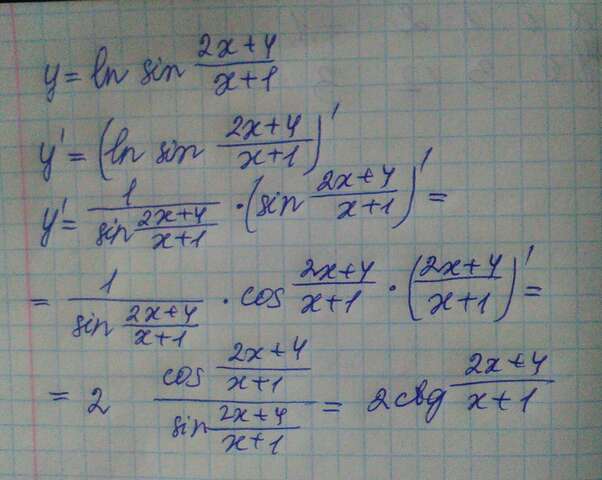 y = ln sin (2x+4)/(x+1)
y' = (ln sin (2x+4)/(x+1))'
y' = 1/(sin (2x+4)/(x+1)) · (sin (2x+4)/(x+1))' =
= 1/(sin (2x+4)/(x+1)) · cos (2x+4)/(x+1) · ((2x+4)/(x+1))' =
= 2 (cos (2x+4)/(x+1))/(sin (2x+4)/(x+1)) = 2ctg (2x+4)/(x+1)